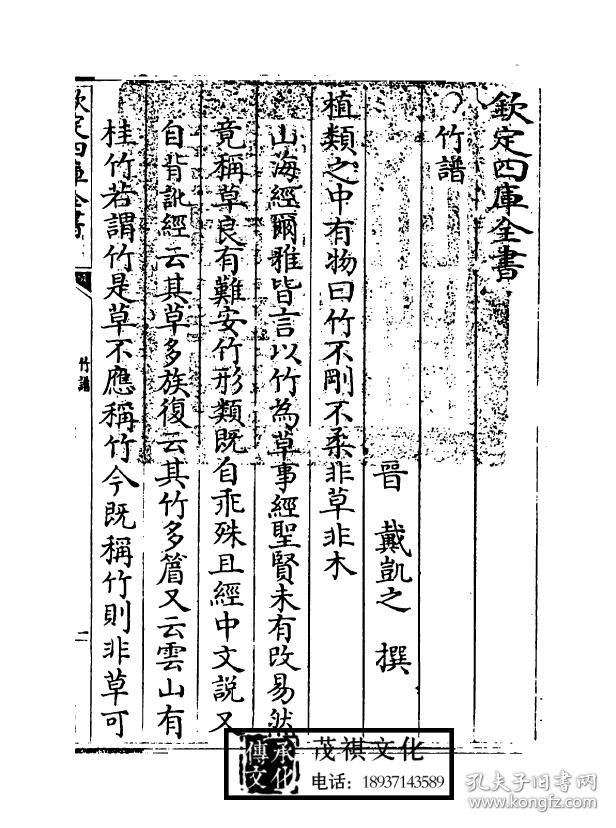 欽定四庫全書
竹譜
晉 戴凱之 撰
植類之中有物曰竹不剛不柔非草非木
山海經爾雅皆言以竹為草事經聖賢未有改易然
竟稱草良有難安竹形類既自乖殊且經中文說又
自背訛經云其草多族復云其竹多篃又云雲山有
桂竹若謂竹是草不應稱竹今既稱竹則非草可
欽定四庫全書
竹譜
二
承傳文化
茂祺文化
电话：18937143589
孔夫子旧书网
www.kongfz.com